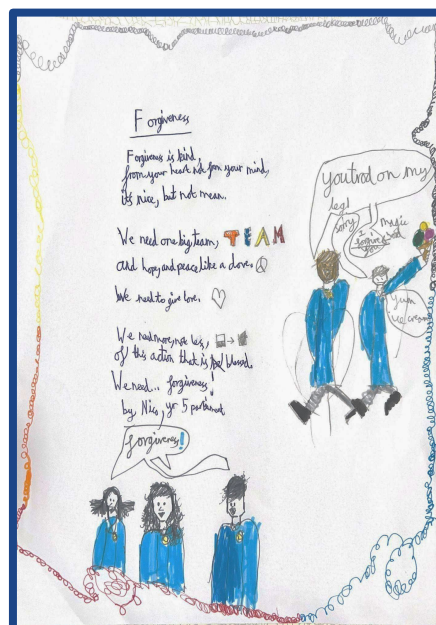 Forgiveness
Forgivness is kind,
from your heart not from your mind,
its nice, but not mean.
We need one big team, TEAM
and hope and peace like a dove.
We need to give love.
We need more, not less,
of this action that is blessed.
We need.. forgiveness!
by Nico, yr 5
forgiveness!
you trod on my
leg!
sorry
I
forgive
you
magic
Yum
ice cream